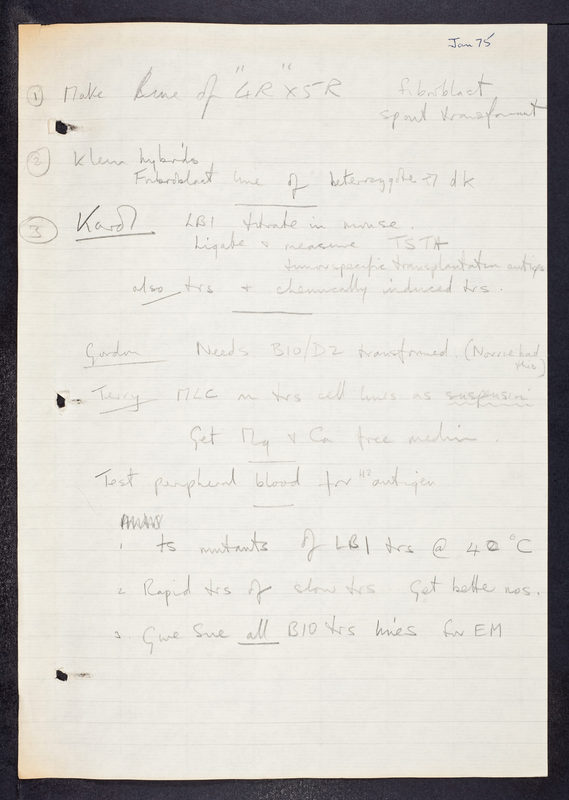 Jan 75
① Make line of "4R" x 5R fibroblast
spont transformant
② Klein hybrids
Fribroblast line of heterozygote dk
③ Karol LB1 titrate in mouse.
Ligate & measure TSTA
tumor specific transplantation antigs
also trs + chemically induced trs.
Gordon Needs B10/D2 transformed. (Norrie had
this)
Terry MLC on trs cell lines as suspension
Get Mg & Ca free medium.
Test peripheral blood for H2 antigen
1 ts mutants of LB1 trs @ 40°C
2 Rapid trs of slow trs Get better nos.
3. Give Sue all B10 trs lines for EM